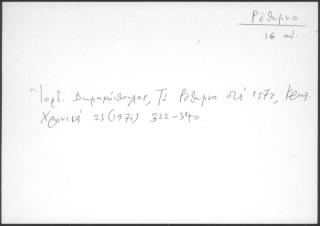 Ρέθυμνο
16 αι.
Ἰορδ. Δημακόπουλος, Τὸ Ρέθυμνο στά 1573, Κρητ.
Χρονικά 23 (1971) 322-340.